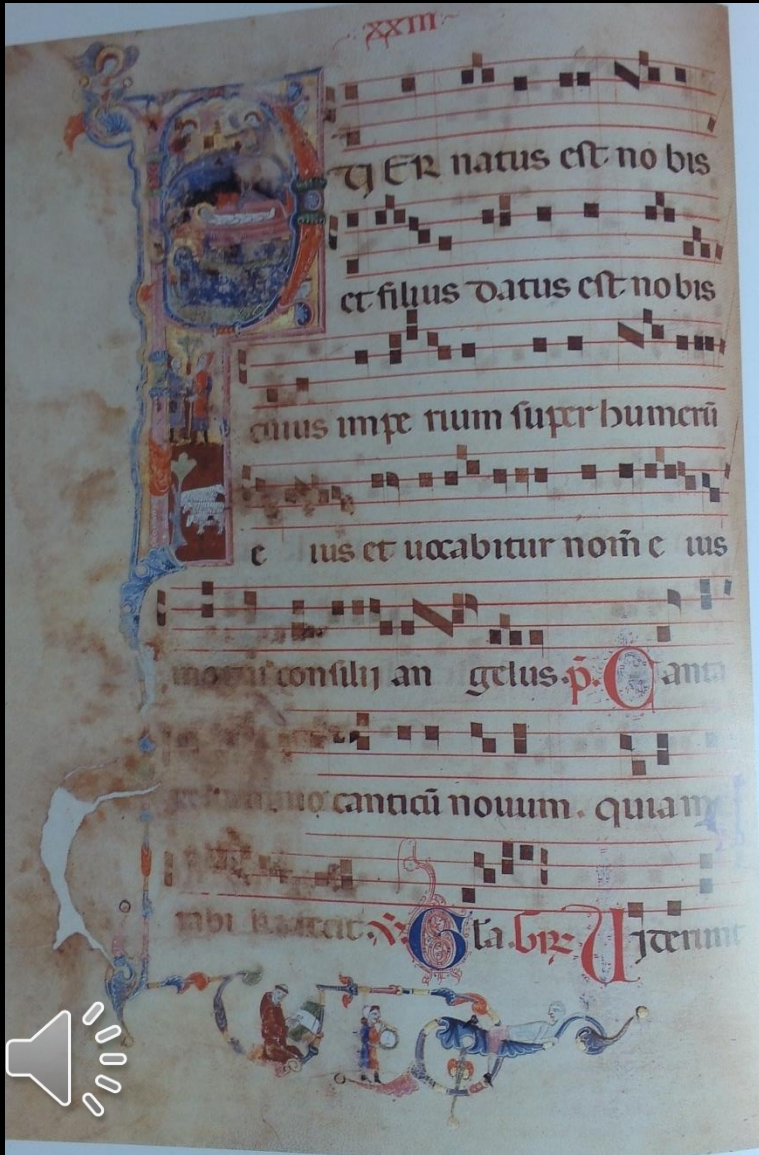 XXIII
PUER natus est no bis
et filius datus est nobis
cuius impe rium super humerū
e ius et uocabitur nom̄ e ius
consilij an gelus. p̄. Canta
canticū nouum. quia m
rabi V. Gl'a. Gr̄. Uiderunt